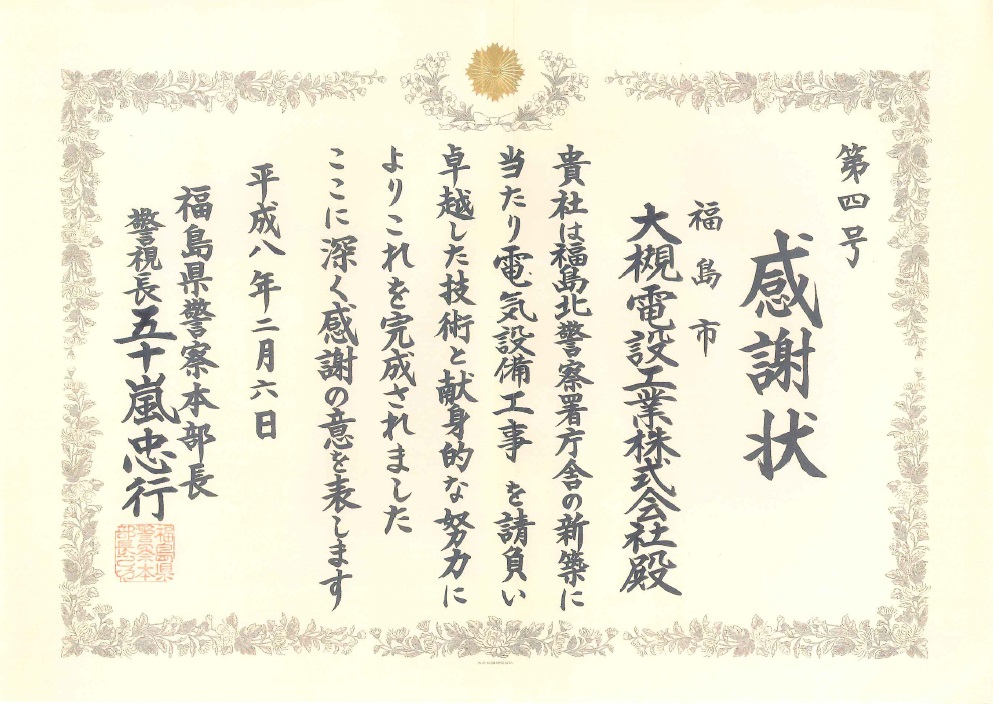 第四号
感謝状
福島市
大槻電設工業株式会社殿
貴社は福島北警察署庁舎の新築に
当たり電気設備工事を請負い
卓越した技術と献身的な努力に
よりこれを完成されました
ここに深く感謝の意を表します
平成八年二月六日
福島県警察本部長
警視長五十嵐忠行
福島県
警察本
部長之印